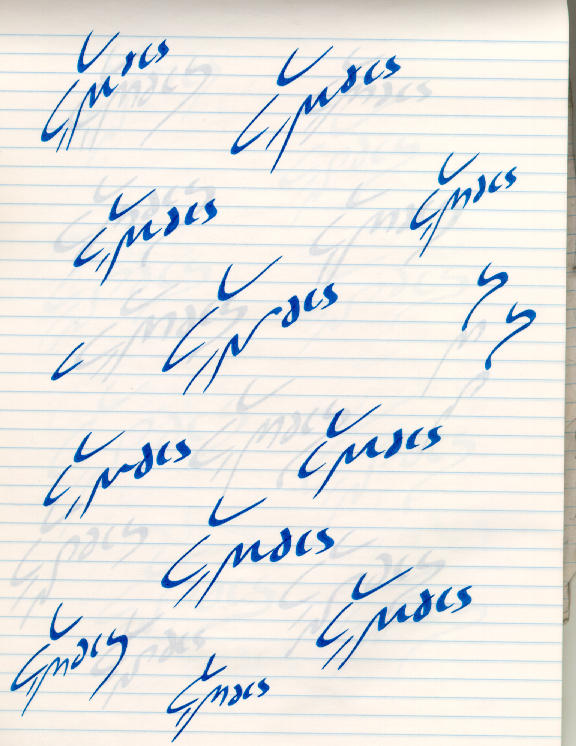 Emacs
Emacs
Emacs
Emacs
Emacs
Emacs
Emacs
Emacs
Emacs
Emacs
Emacs